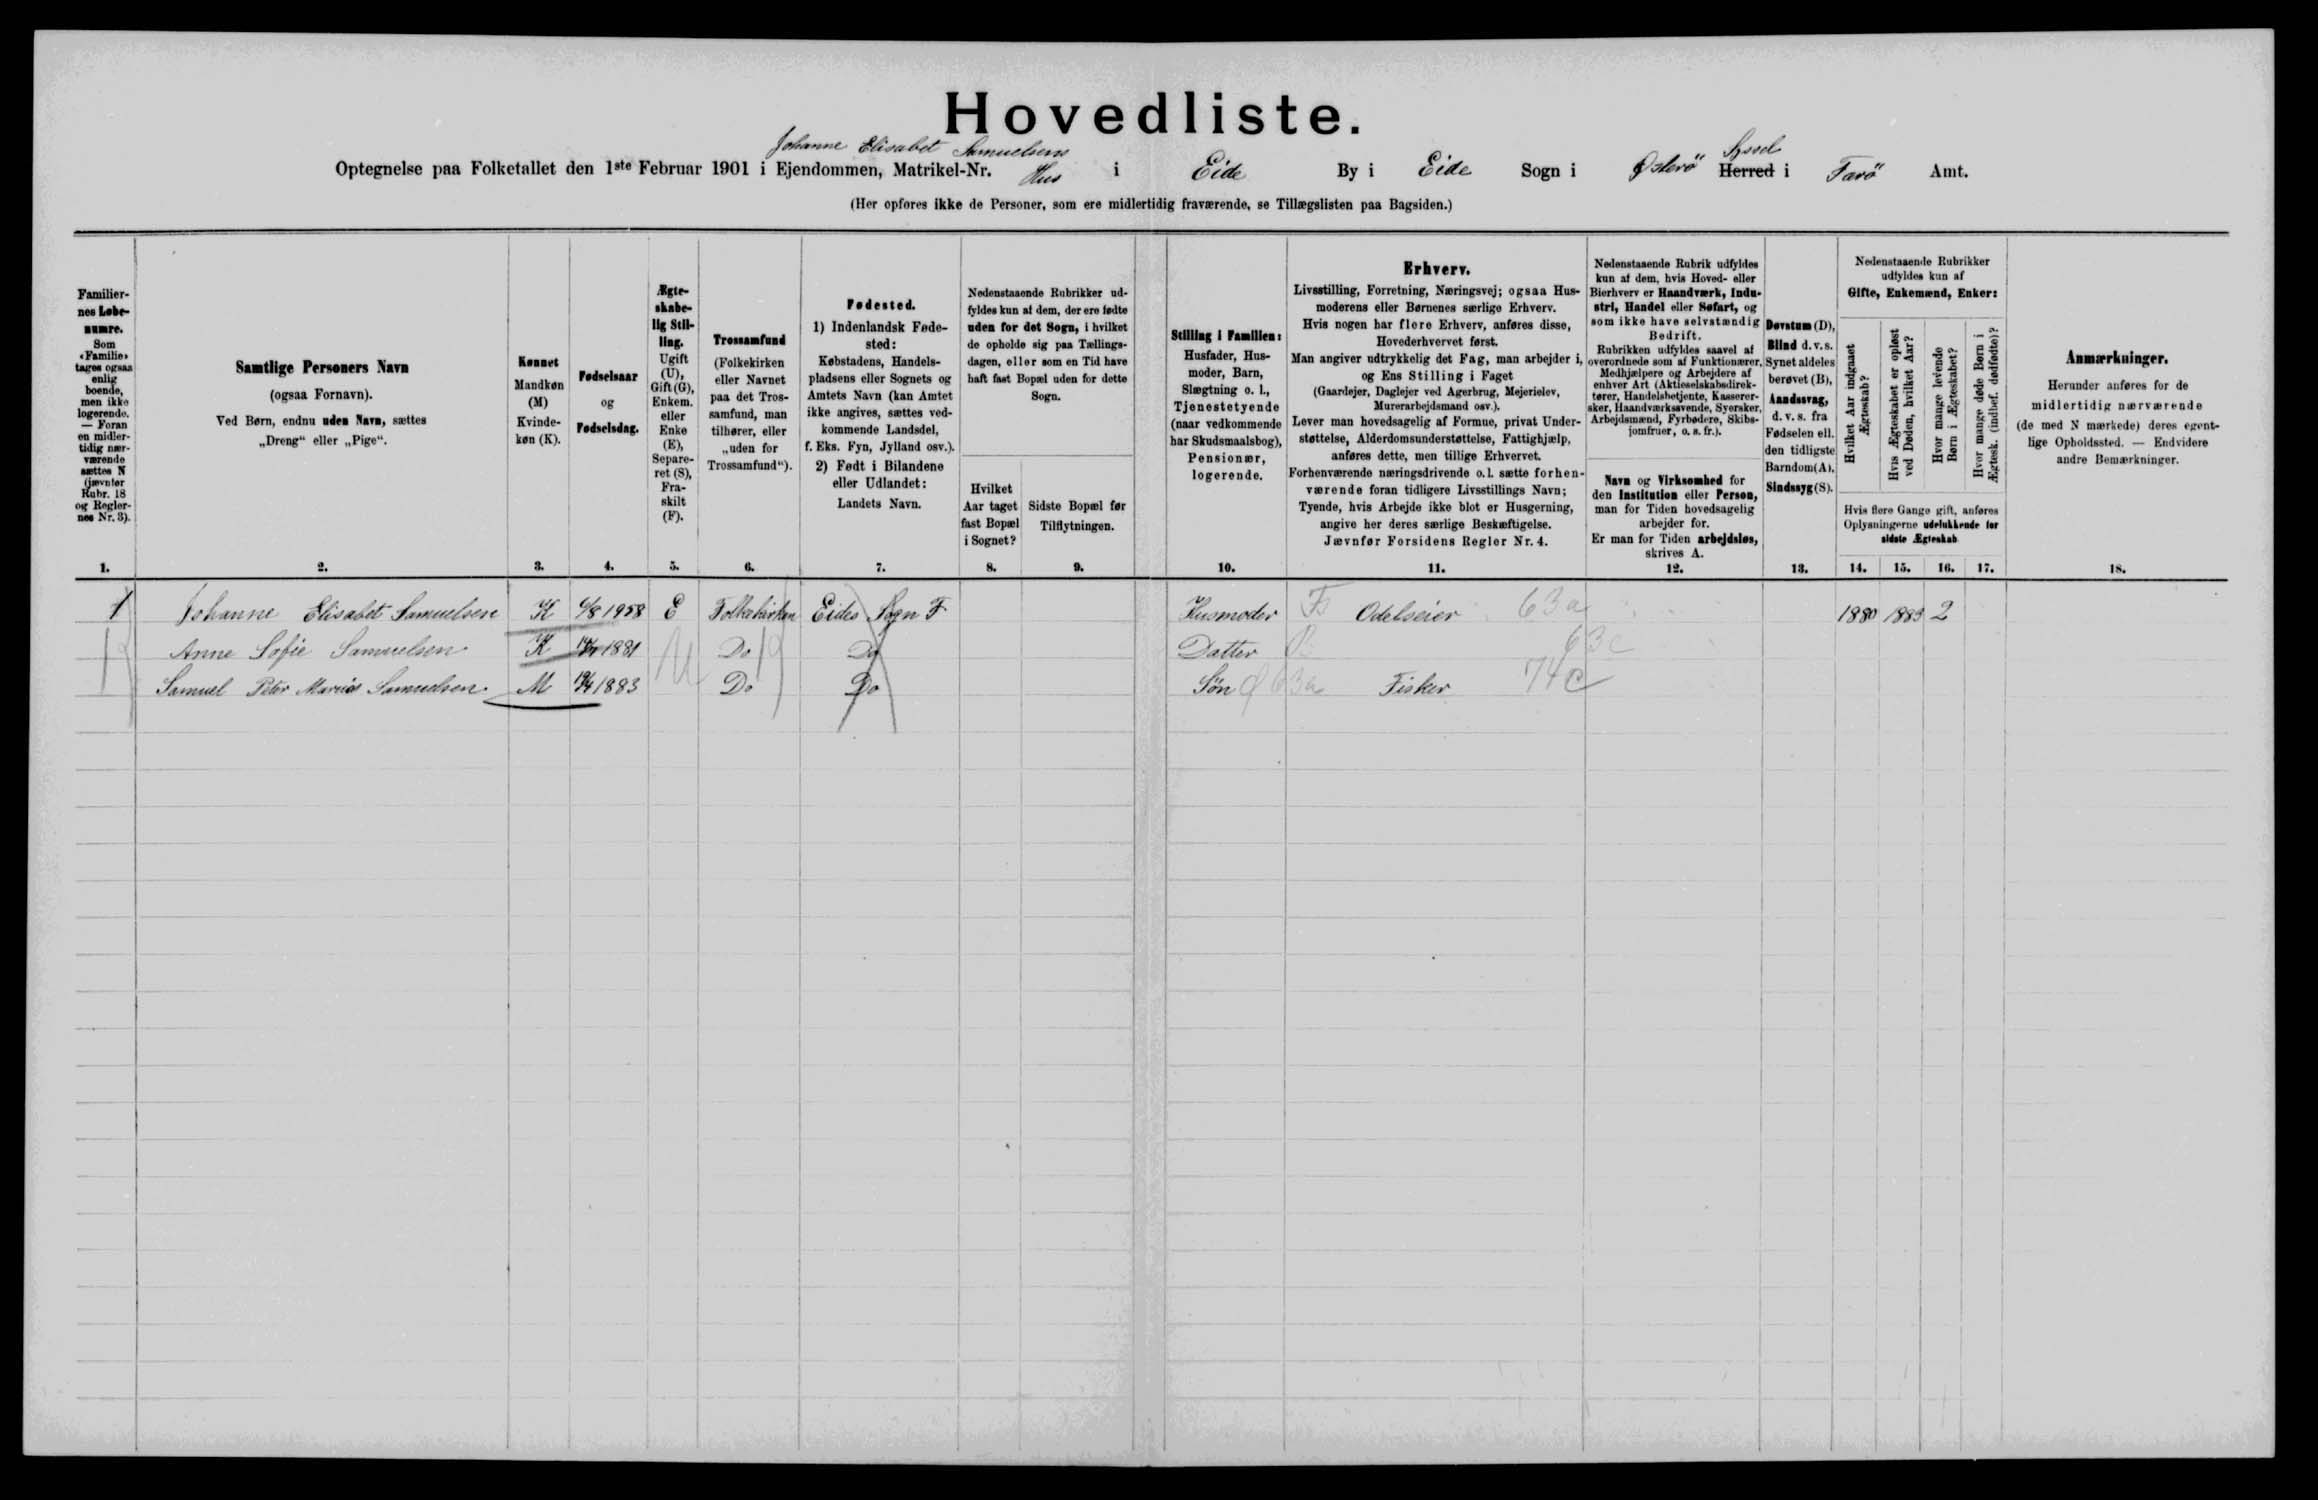 Hovedliste.
Johanne Elisabet Samuelsens
Syssel
Optegnelse paa Folketallet den 1ste Februar 1901 i Ejendommen, Matrikel-Nr. Hus i Eide By i Eide Sogn i Østerö Herred i Færö Amt.
(Her opføres ikke de Personer, som ere midlertidig fraværende, se Tillægslisten paa Bagsiden.)
Familier-
nes Løbe-
numre.
Som
«Familie»
tages ogsaa
enlig
boende,
men ikke
logerende.
— Foran
en midler-
tidig nær-
værende
sættes N
(jævnfør
Rubr. 18
og Regler-
nes Nr. 3).
1.
Samtlige Personers Navn
(ogsaa Fornavn).
Ved Børn, endnu uden Navn, sættes
„Dreng“ eller „Pige“.
2.
Kønnet
Mandkøn
(M)
Kvinde-
køn (K).
3.
Fødselsaar
og
Fødselsdag.
4.
Ægte-
skabe-
lig Stil-
ling.
Ugift
(U),
Gift(G),
Enkem.
eller
Enke
(E),
Separe-
ret (S),
Fra-
skilt
(F).
5.
Trossamfund
(Folkekirken
eller Navnet
paa det Tros-
samfund, man
tilhører, eller
„uden for
Trossamfund“).
6.
Fødested.
1) Indenlandsk Føde-
sted:
Købstadens, Handels-
pladsens eller Sognets og
Amtets Navn (kan Amtet
ikke angives, sættes ved-
kommende Landsdel,
f. Eks. Fyn, Jylland osv.).
2) Født i Bilandene
eller Udlandet:
Landets Navn.
7.
Nedenstaaende Rubrikker ud-
fyldes kun af dem, der ere fødte
uden for det Sogn, i hvilket
de opholde sig paa Tællings-
dagen, eller som en Tid have
haft fast Bopæl uden for dette
Sogn.
Hvilket
Aar taget
fast Bopæl
i Sognet?
8.
Sidste Bopæl før
Tilflytningen.
9.
Stilling i Familien:
Husfader, Hus-
moder, Barn,
Slægtning o. l.,
Tjenestetyende
(naar vedkommende
har Skudsmaalsbog),
Pensionær,
logerende.
10.
Erhverv.
Livsstilling, Forretning, Næringsvej; ogsaa Hus-
moderens eller Børnenes særlige Erhverv.
Hvis nogen har flere Erhverv, anføres disse,
Hovederhvervet først.
Man angiver udtrykkelig det Fag, man arbejder i,
og Ens Stilling i Faget
(Gaardejer, Daglejer ved Agerbrug, Mejerielev,
Murerarbejdsmand osv.).
Lever man hovedsagelig af Formue, privat Under-
støttelse, Alderdomsunderstøttelse, Fattighjælp,
anføres dette, men tillige Erhvervet.
Forhenværende næringsdrivende o.l. sætte forhen-
værende foran tidligere Livsstillings Navn;
Tyende, hvis Arbejde ikke blot er Husgerning,
angive her deres særlige Beskæftigelse.
Jævnfør Forsidens Regler Nr. 4.
11.
Nedenstaaende Rubrik udfyldes
kun af dem, hvis Hoved- eller
Bierhverv er Haandværk, Indu-
stri, Handel eller Søfart, og
som ikke have selvstændig
Bedrift.
Rubrikken udfyldes saavel af
overordnede som af Funktionærer,
Medhjælpere og Arbejdere af
enhver Art (Aktieselskabsdirek-
tører, Handelsbetjente, Kasserer-
sker, Haandværkssvende, Syersker,
Arbejdsmænd, Fyrbødere, Skibs-
jomfruer, o. s. fr.).
Navn og Virksomhed for
den Institution eller Person,
man for Tiden hovedsagelig
arbejder for.
Er man for Tiden arbejdsløs,
skrives A.
12.
Døvstum (D),
Blind d. v. s.
Synet aldeles
berøvet (B),
Aandssvag,
d. v. s. fra
Fødselen ell.
den tidligste
Barndom(A),
Sindssyg(S).
13.
Nedenstaaende Rubrikker
udfyldes kun af
Gifte, Enkemænd, Enker:
Hvilket Aar indgaaet
Ægteskab?
Hvis Ægteskabet er opløst
ved Døden, hvilket Aar?
Hvor mange levende
Børn i Ægteskabet?
Hvor mange døde Børn i
Ægtesk. (indbef. dødfødte)?
Hvis flere Gange gift, anføres
Oplysningerne udelukkende for
sidste Ægteskab
14. 15. 16. 17.
Anmærkninger.
Herunder anføres for de
midlertidig nærværende
(de med N mærkede) deres egent-
lige Opholdssted. — Endvidere
andre Bemærkninger.
18.
1 Johanne Elisabet Samuelsen K 6/8 1958 E Folkekirken Eides Sogn F Husmoder Odelseier 63a 1880 1883 2
Anne Sofie Samuelsen K 1881 Do Do Datter 63c
Samuel Peter Marius Samuelsen M 1883 U Do Do Søn 63a Fisker 74c